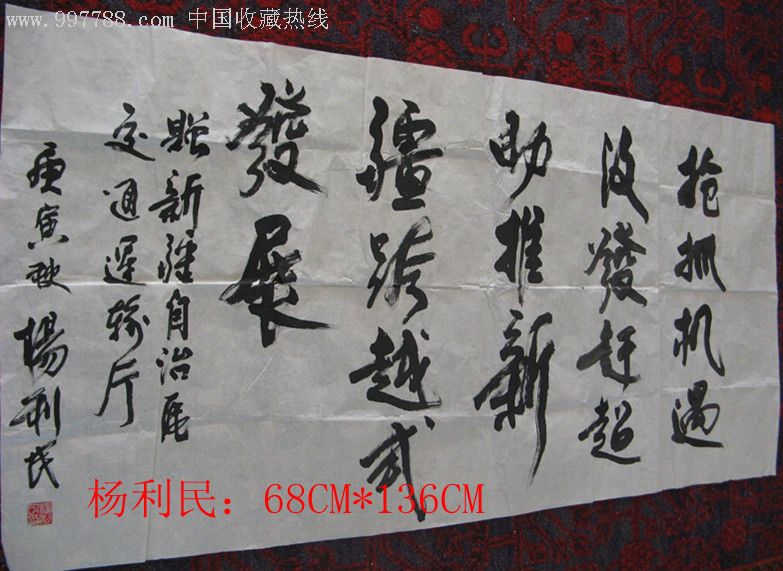 www.997788.com 中国收藏热线
抢抓机遇
后發赶超
助推新
疆跨越式
發展
赠新疆自治区
交通运输厅
庚寅秋 楊利民
杨利民：68CM*136CM